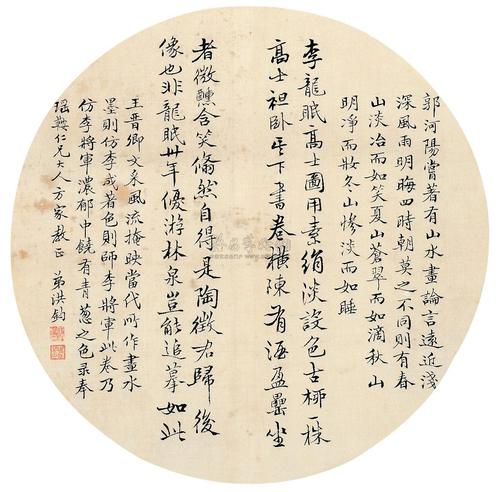 郭河陽嘗著有山水畫論言遠近淺
深風雨明晦四時朝莫之不同則有春
山淡冶而如笑夏山蒼翠而如滴秋山
明淨而妝冬山慘淡而如睡
李龍眠高士圖用素絹淡設色古柳一株
高士袒卧其下書卷橫陳有酒盈罍坐
者微醺含笑翛然自得是陶徵君歸後
像也非龍眠卅年優游林泉豈能追摹如此
王晉卿文采風流掩映當代所作畫水
墨則仿李成著色則師李將軍此卷乃
仿李將軍濃郁中饒有青蔥之色录奉
仁兄大人方家教正 弟洪鈞